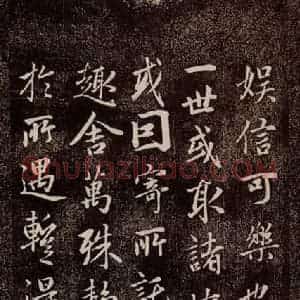 娛信可樂也
一世或取諸
或因寄所託
趣舍萬殊靜
於所遇暫得
shufaziliao.com